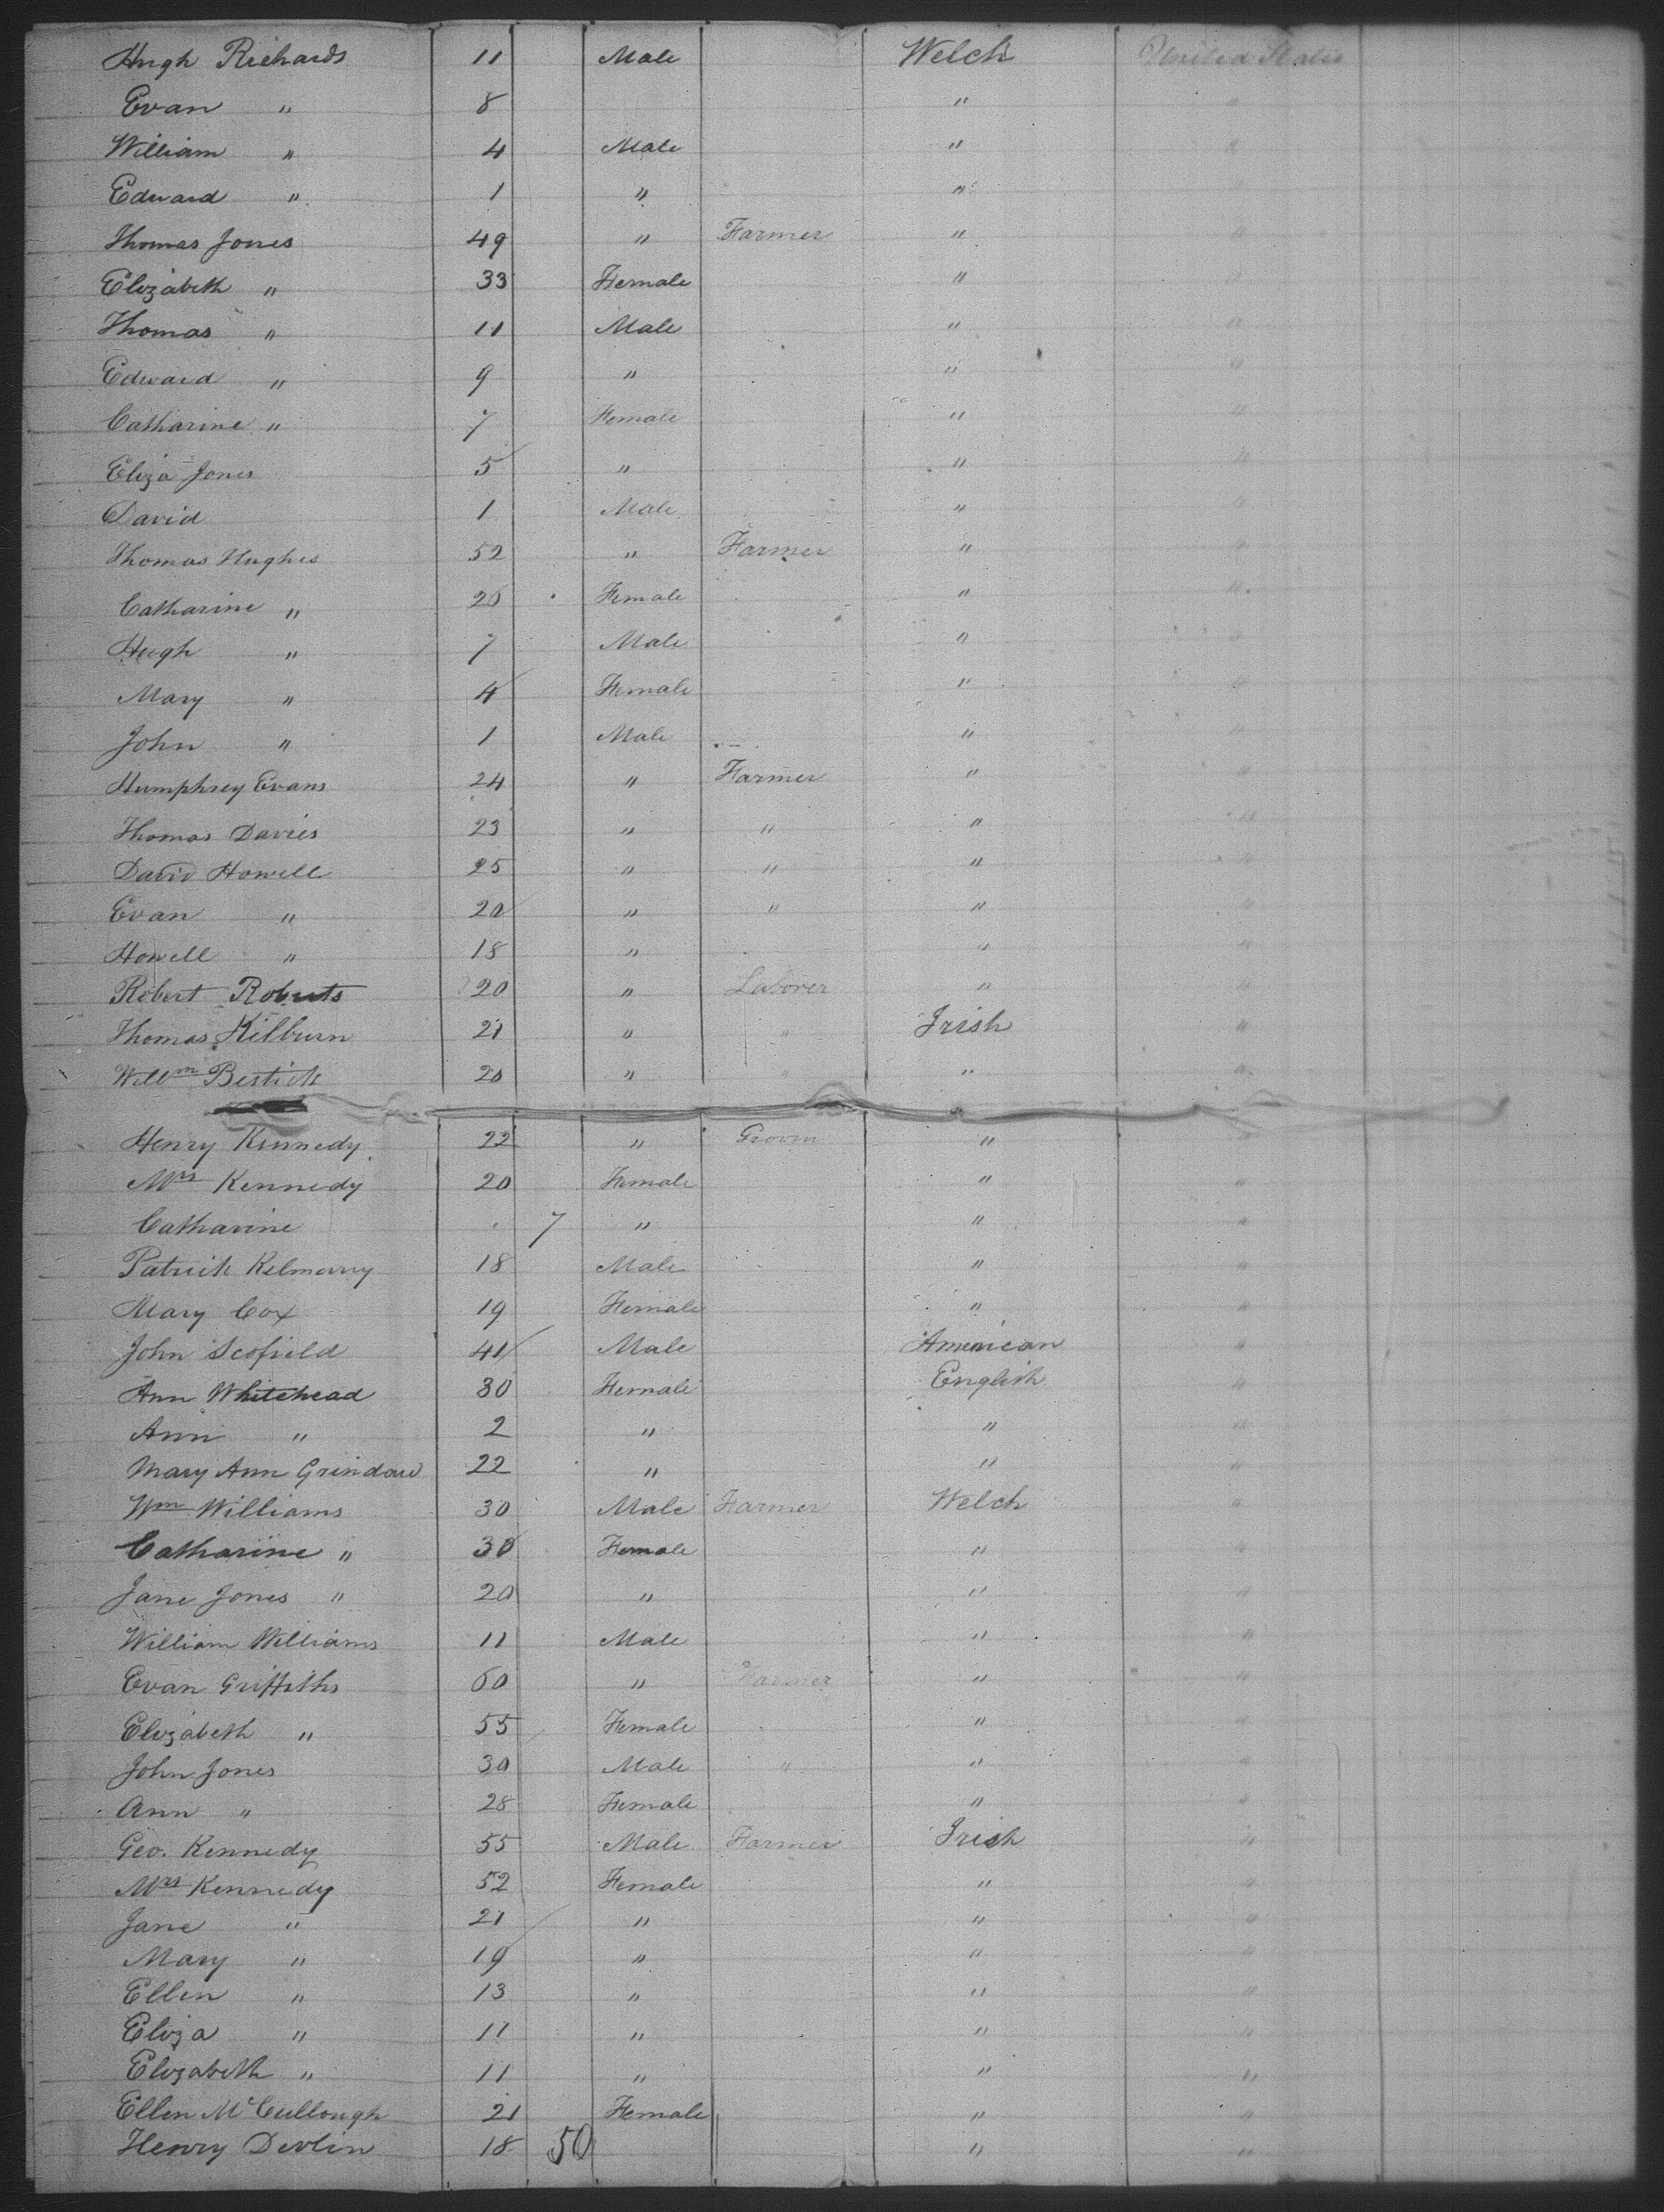 Hugh Richards 11 Male Welch United States
Evan " 8 " "
William " 4 Male " "
Edward " 1 " " "
Thomas Jones 49 " Farmer " "
Elizabeth " 33 Female " "
Thomas " 11 Male " "
Edward " 9 " " "
Catharine " 7 Female " "
Eliza Jones 5 " " "
David 1 Male " "
Thomas Hughes 52 " Farmer " "
Catharine " Female " "
Hugh " 7 Male " "
Mary " 4 Female " "
John " 1 Male " "
Humphrey Evans 24 " Farmer " "
Thomas Davies 23 " " " "
David Howell 25 " " " "
Evan " 20 " " " "
Howell " 18 " " "
Robert Roberts 20 " Laborer " "
Thomas Kilburn 21 " " Irish "
Willm Bestick 20 " " " "
Henry Kennedy 22 " Groom " "
Mrs Kennedy 20 Female " "
Catharine 7 " " "
Patrick Kelmurry 18 Male " "
Mary Cox 19 Female " "
John Scofield 41 Male American "
Ann Whitehead 30 Female English "
Ann " 2 " " "
Mary Ann 22 " " "
Wm Williams 30 Male Farmer Welch "
Catharine " 30 Female " "
Jane Jones " 20 " " "
William Williams 11 Male " "
Evan Griffiths 60 " Farmer " "
Elizabeth " 55 Female " "
John Jones 30 Male " " "
Ann " 28 Female " "
Geo. Kennedy 55 Male Farmer Irish "
Mrs Kennedy 52 Female " "
Jane " 21 " " "
Mary " 19 " " "
Ellen " 13 " " "
Eliza " 11 " " "
Elizabeth " 11 " " "
Ellen McCullough 21 Female " "
Henry Devlin 18 50 " "